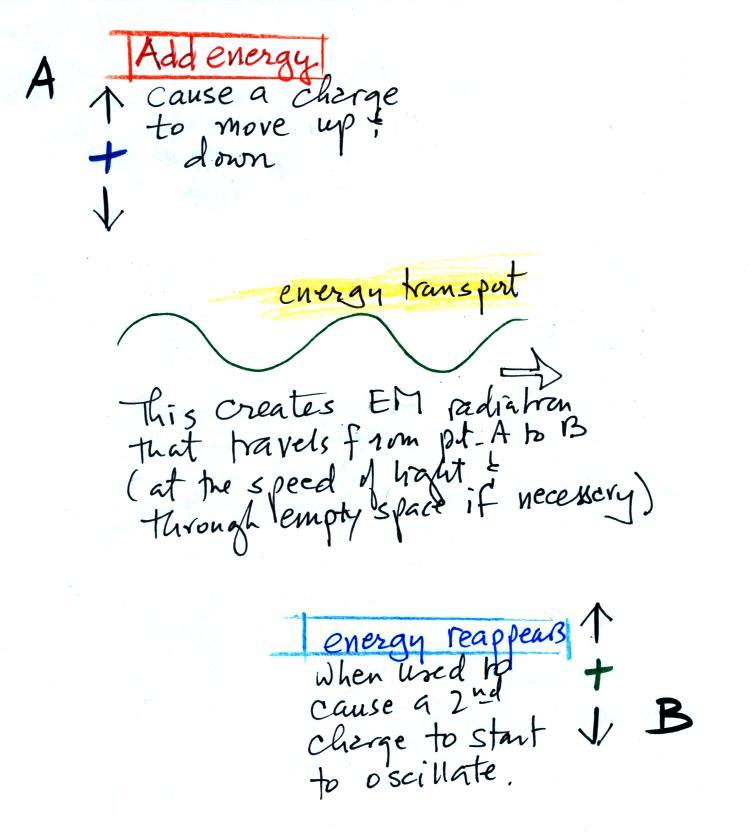 A
Add energy
cause a charge
to move up &
down
+
energy transport
This creates EM radiation
that travels from pt. A to B
(at the speed of light &
through empty space if necessary)
energy reappears
when used to
cause a 2nd
charge to start
to oscillate.
+
B